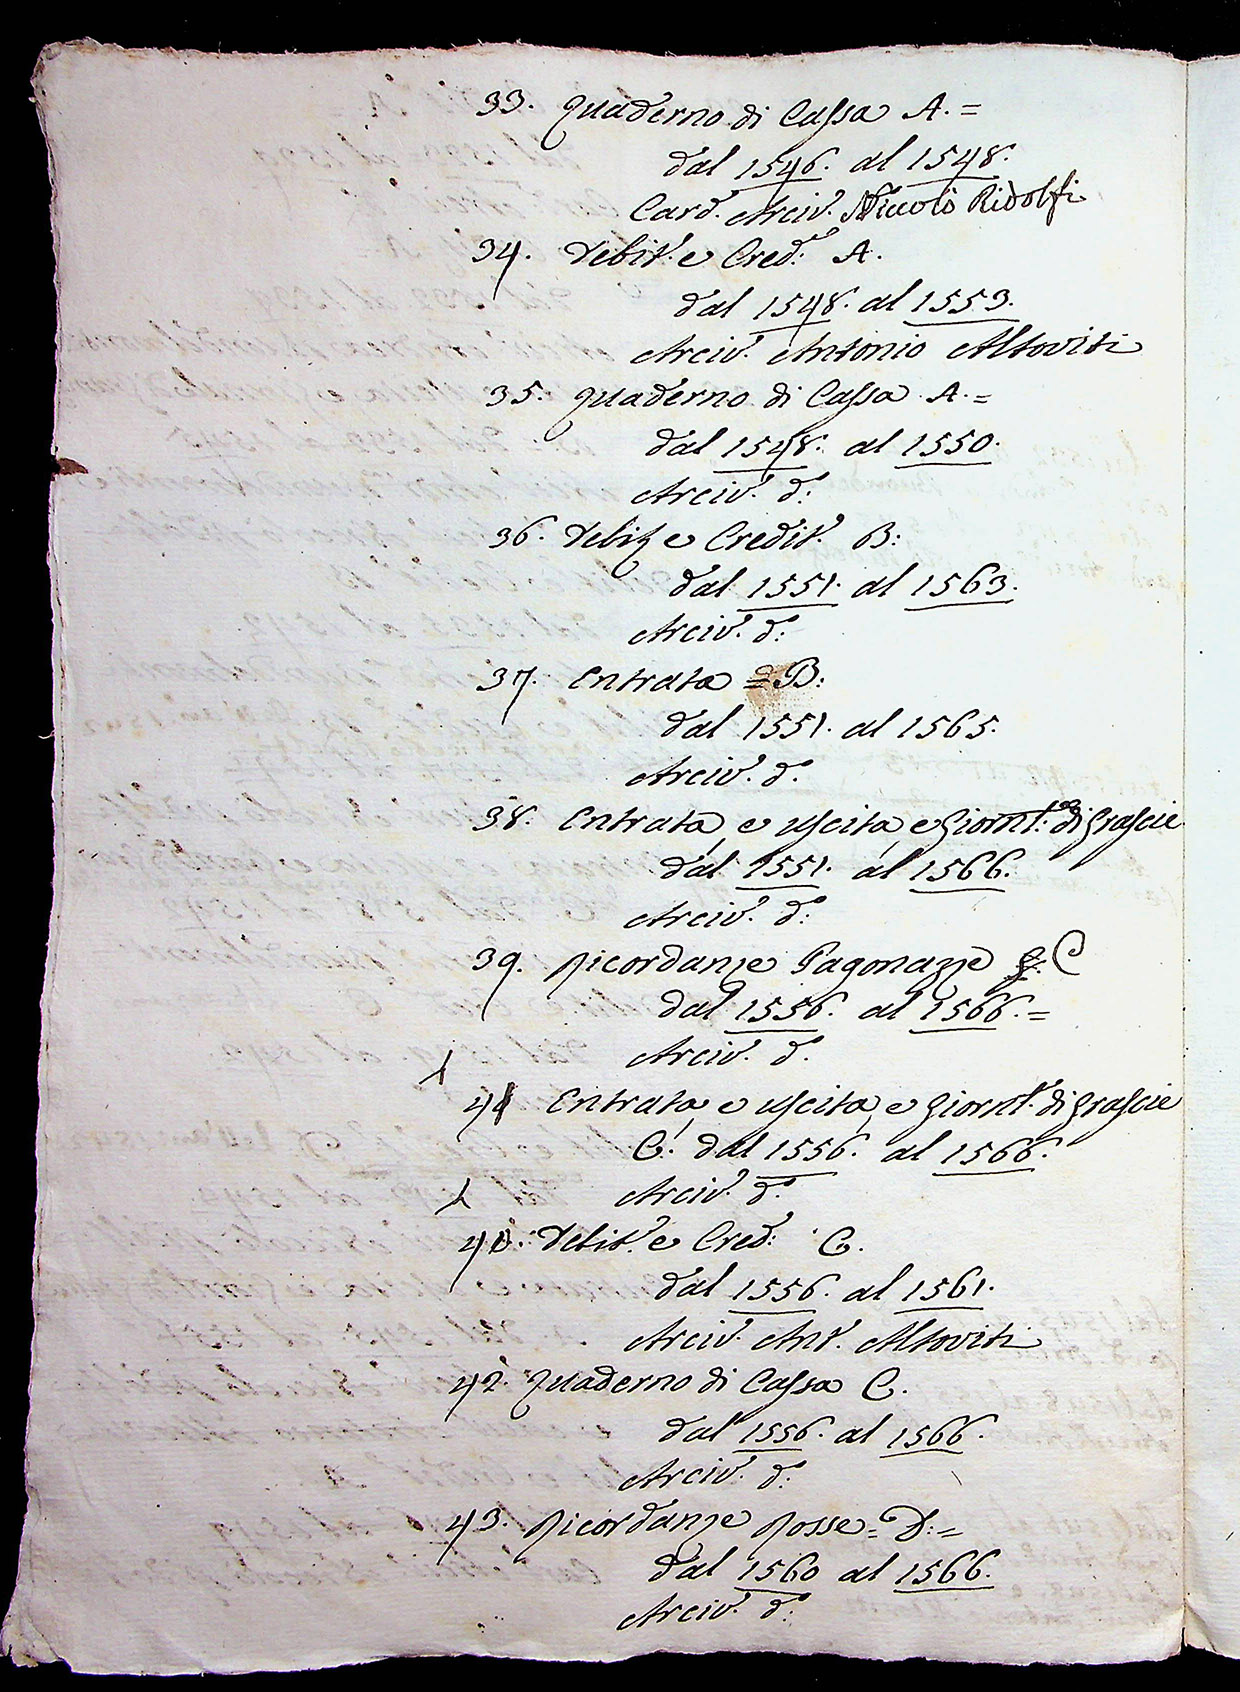 33. Quaderno di Cassa A.=
dal 1546. al 1548.
Card. Arciv. Niccolò Ridolfi
34. Debit. e Cred. A.
dal 1548. al 1553.
Arciv. Antonio Altoviti
35. Quaderno di Cassa A.=
dal 1548. al 1550.
Arciv. d.º
36. Debit. e Credit. B:
dal 1551. al 1563.
Arciv. d.º
37. Entrata = B:
dal 1551. al 1565.
Arciv. d.º
38. Entrata, e uscita, e Giornl.e di Grascie
dal 1551. al 1566.
Arciv. d.º
39. Ricordanze Pagonazze C
dal 1556. al 1566.=
Arciv. d.º
41 Entrata, e uscita, e Giornl.e di Grascie
C. dal 1556. al 1566.
Arciv. d.º
40. Debit. e Cred. C.
dal 1556. al 1561.
Arciv. Ant. Altoviti
42. Quaderno di Cassa C.
dal 1556. al 1566.
Arciv. d.º
43. Ricordanze Rosse = D: =
dal 1560 al 1566.
Arciv. d.º